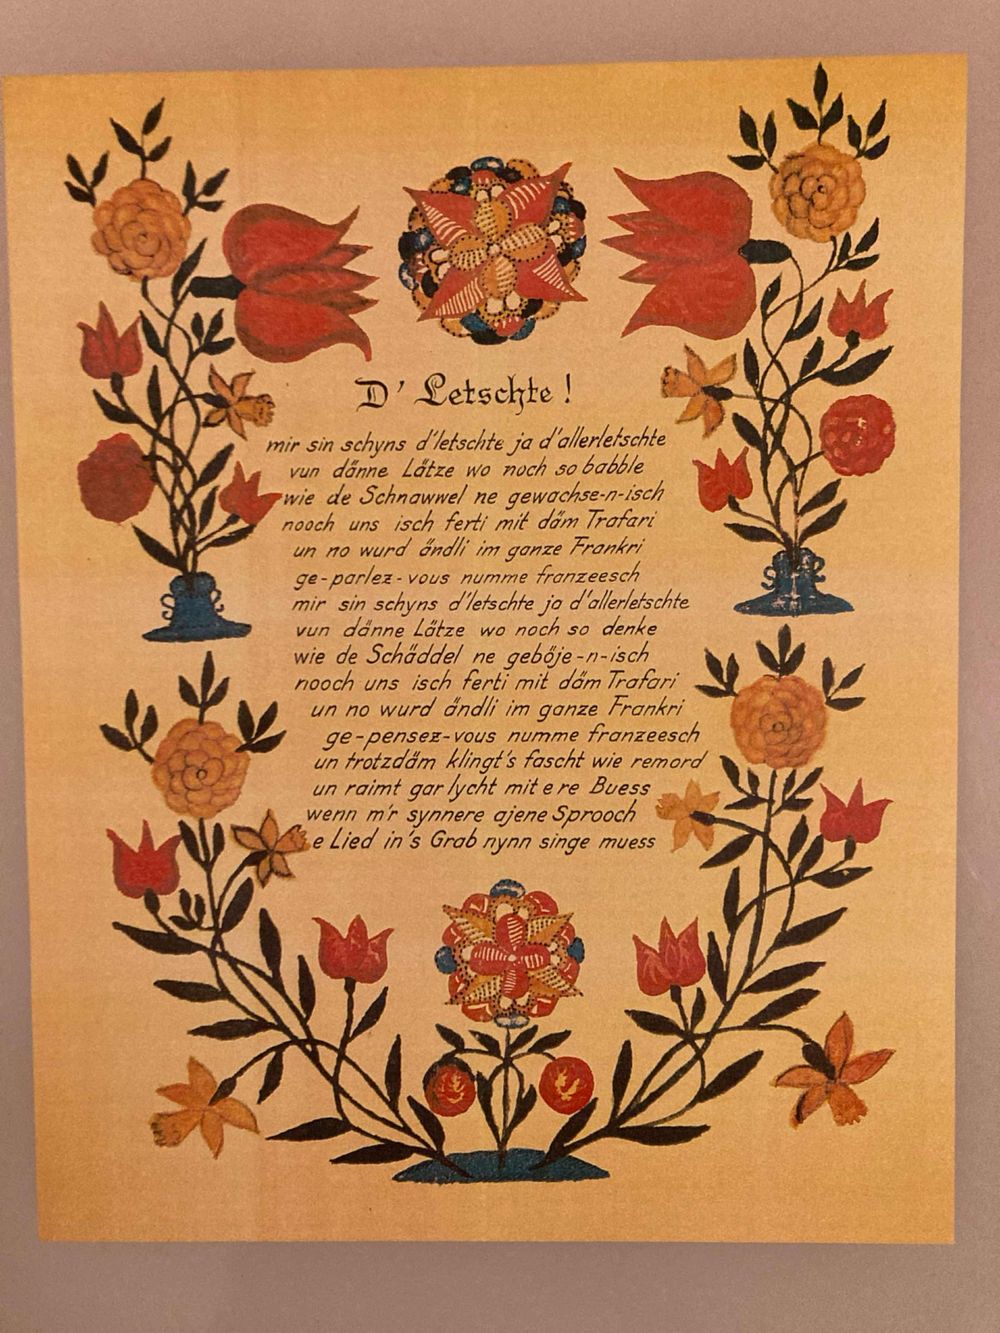 D' Letschte !
mir sin schyns d'letschte ja d'allerletschte
vun dänne Lätze wo noch so babble
wie de Schnawwel ne gewachse-n-isch
nooch uns isch ferti mit däm Trafari
un no wurd ändli im ganze Frankri
ge-parlez-vous numme franzeesch
mir sin schyns d'letschte ja d'allerletschte
vun dänne Lätze wo noch so denke
wie de Schäddel ne geböje-n-isch
nooch uns isch ferti mit däm Trafari
un no wurd ändli im ganze Frankri
ge-pensez-vous numme franzeesch
un trotzdäm klingt's fascht wie remord
un raimt gar lycht mit ere Buess
wenn m'r synnere ajene Sprooch
e Lied in's Grab nynn singe muess